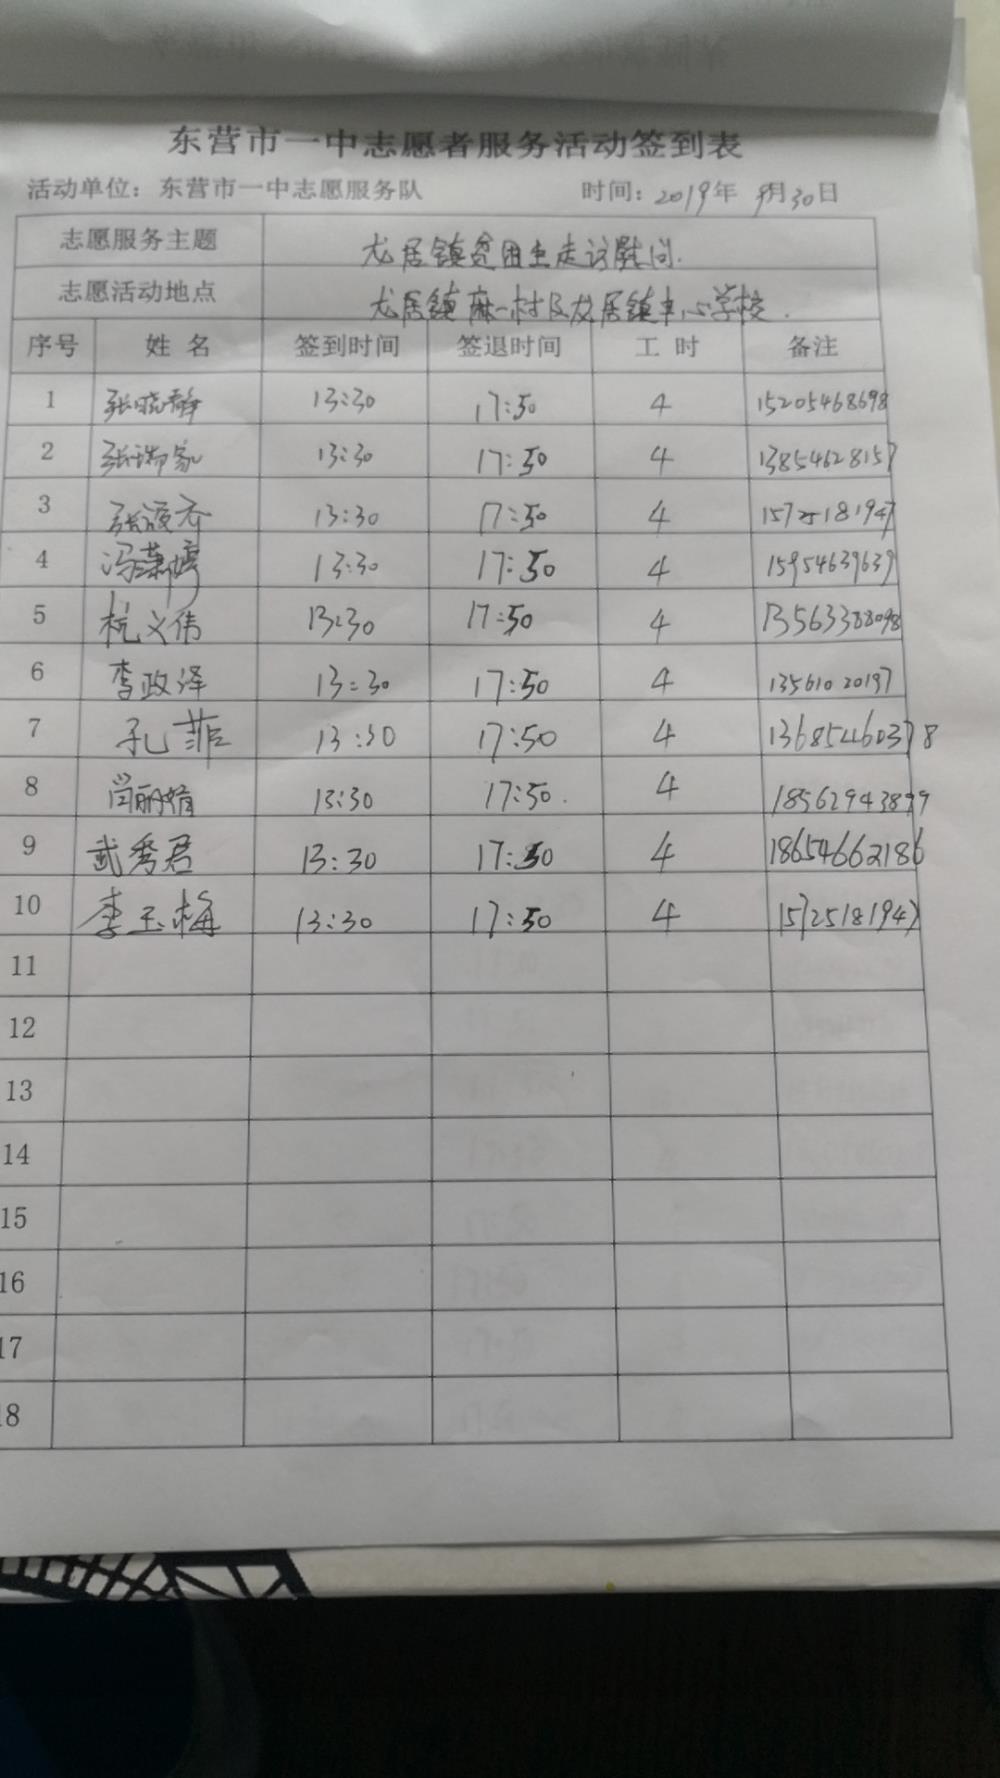 东营市一中志愿者服务活动签到表
活动单位：东营市一中志愿服务队 时间：2019年 9月30日
志愿服务主题 龙居镇贫困生走访慰问.
志愿活动地点 龙居镇麻一村及龙居镇中心学校.
序号 姓名 签到时间 签退时间 工时 备注
1 张晓静 13:30 17:50 4 15205468698
2 张瑞家 13:30 17:50 4 13854628157
3 张 13:30 17:50 4 15725181947
4 冯潇婷 13:30 17:50 4 15954639639
5 杭义伟 13:30 17:50 4 13563388098
6 李政泽 13:30 17:50 4 13561020197
7 孔菲 13:30 17:50 4 13685460378
8 闫丽娟 13:30 17:50. 4 18562943899
9 武秀君 13:30 17:50 4 18654662186
10 李玉梅 13:30 17:50 4 15725181947
11
12
13
14
15
16
17
18